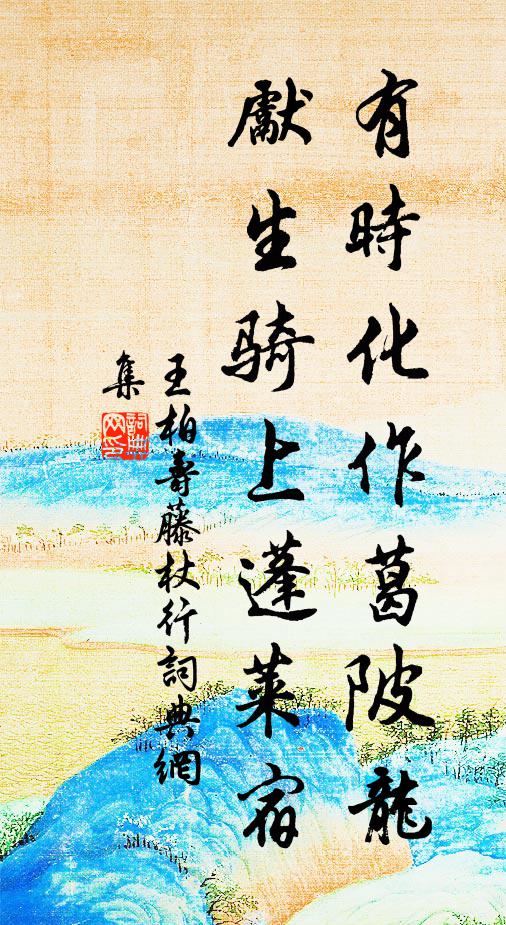 有時化作葛陂龍
獻生騎上蓬萊宿
王柏壽藤杖行詞典網
集
詞典網印